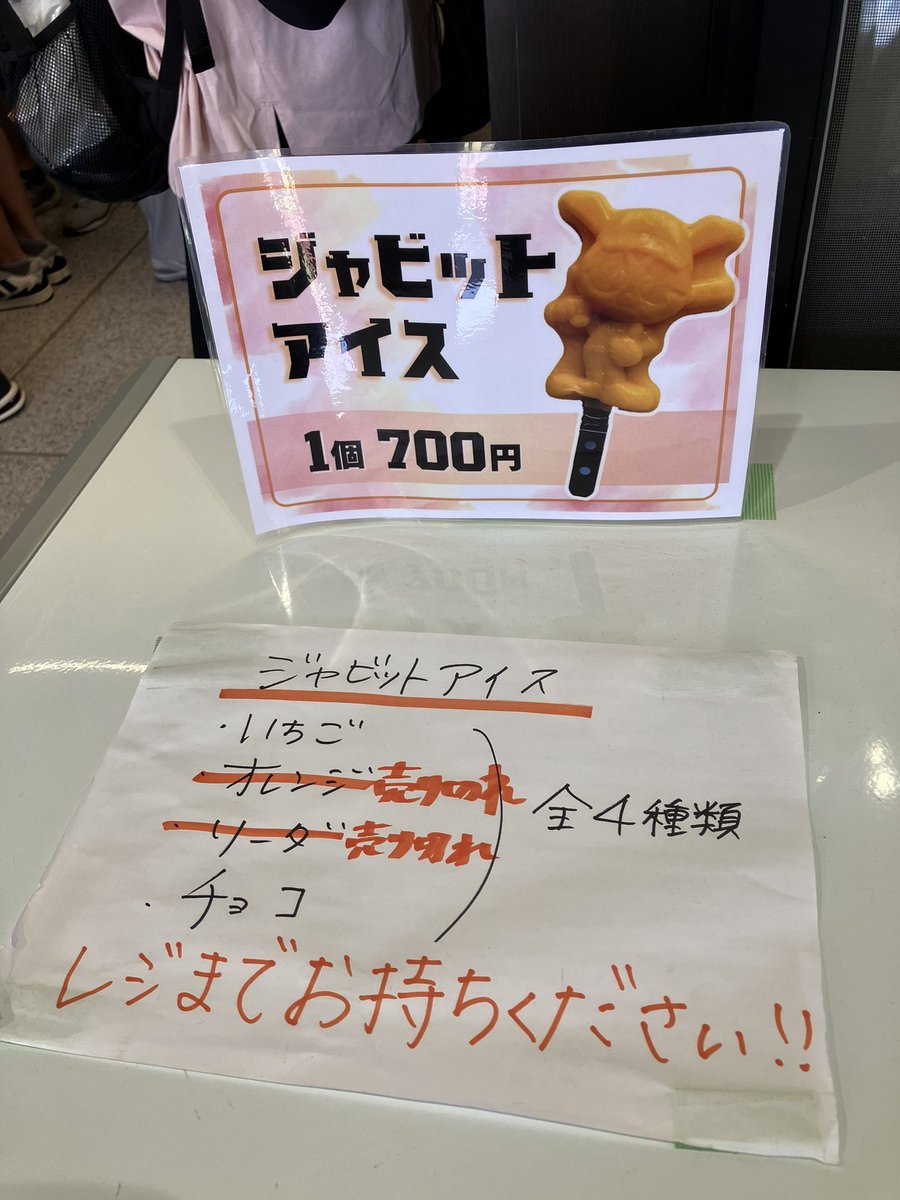 ジャビット
アイス
1個 700円
ジャビットアイス
・いちご
・オレンジ売切れ
・ソーダ売切れ
・チョコ
全4種類
レジまでお持ちください!!